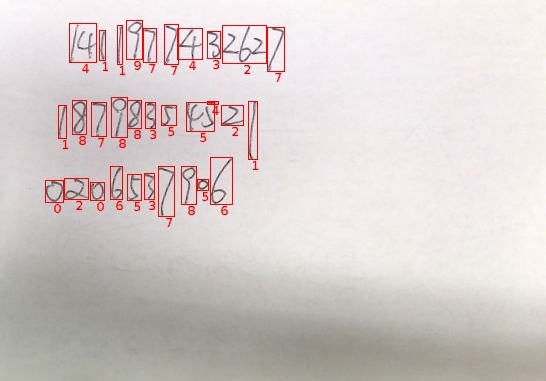 1411977432627
4 1 1 9 7 7 4 3 2 7
18798354521
1 8 7 8 8 3 5 5 4 2 1
0206537906
0 2 0 6 5 3 7 8 5 6